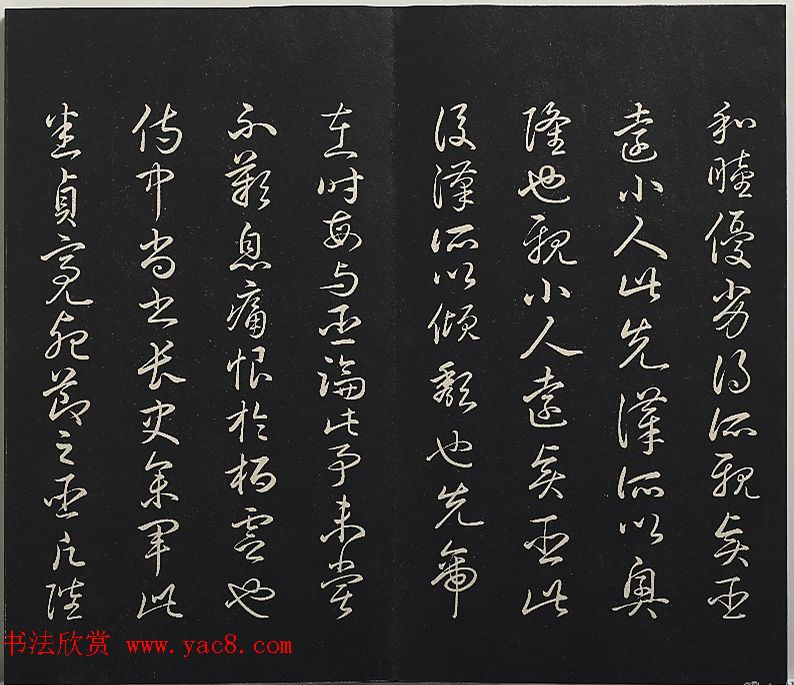 和睦優劣得所親賢臣
遠小人此先漢所以興
隆也親小人遠賢臣此
後漢所以傾頹也先帝
在時每与臣論此事未嘗
不歎息痛恨於桓靈也
侍中尚書長史參軍此
悉貞亮死節之臣陛
书法欣赏 www.yac8.com